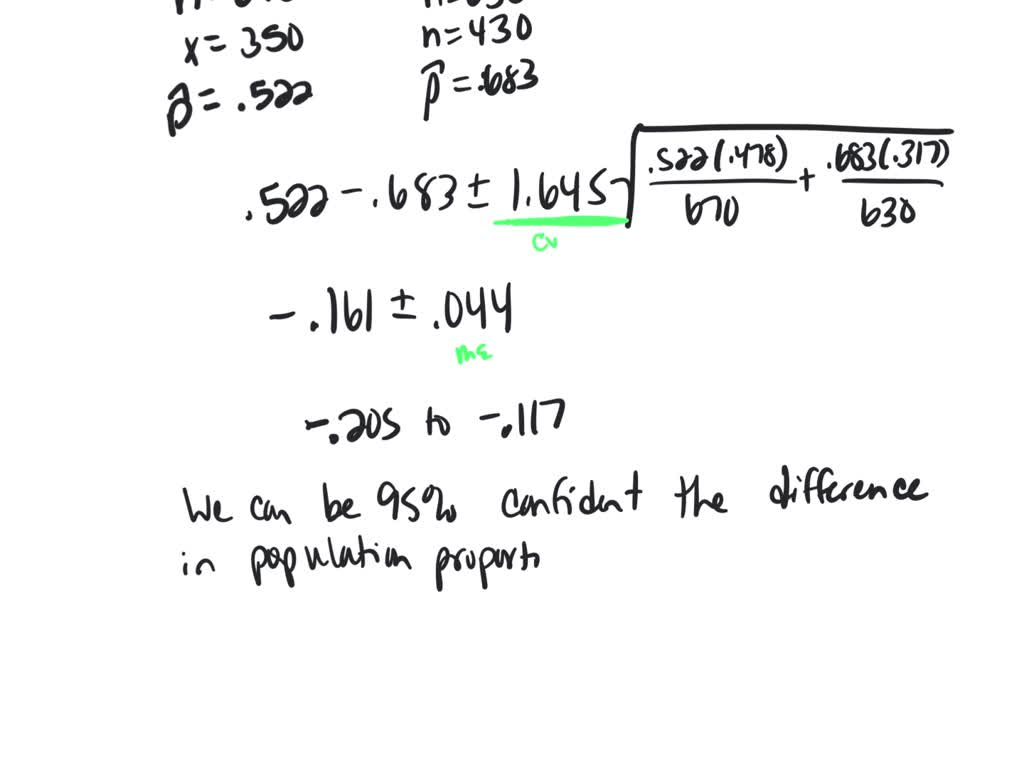 x = 350 n = 430
p̂ = .522 p̂ = .683
.522 - .683 ± 1.645 √ .522(.478)/670 + .683(.317)/630
cv
- .161 ± .044
ME
-.205 to -.117
We can be 95% confident the difference
in population proport